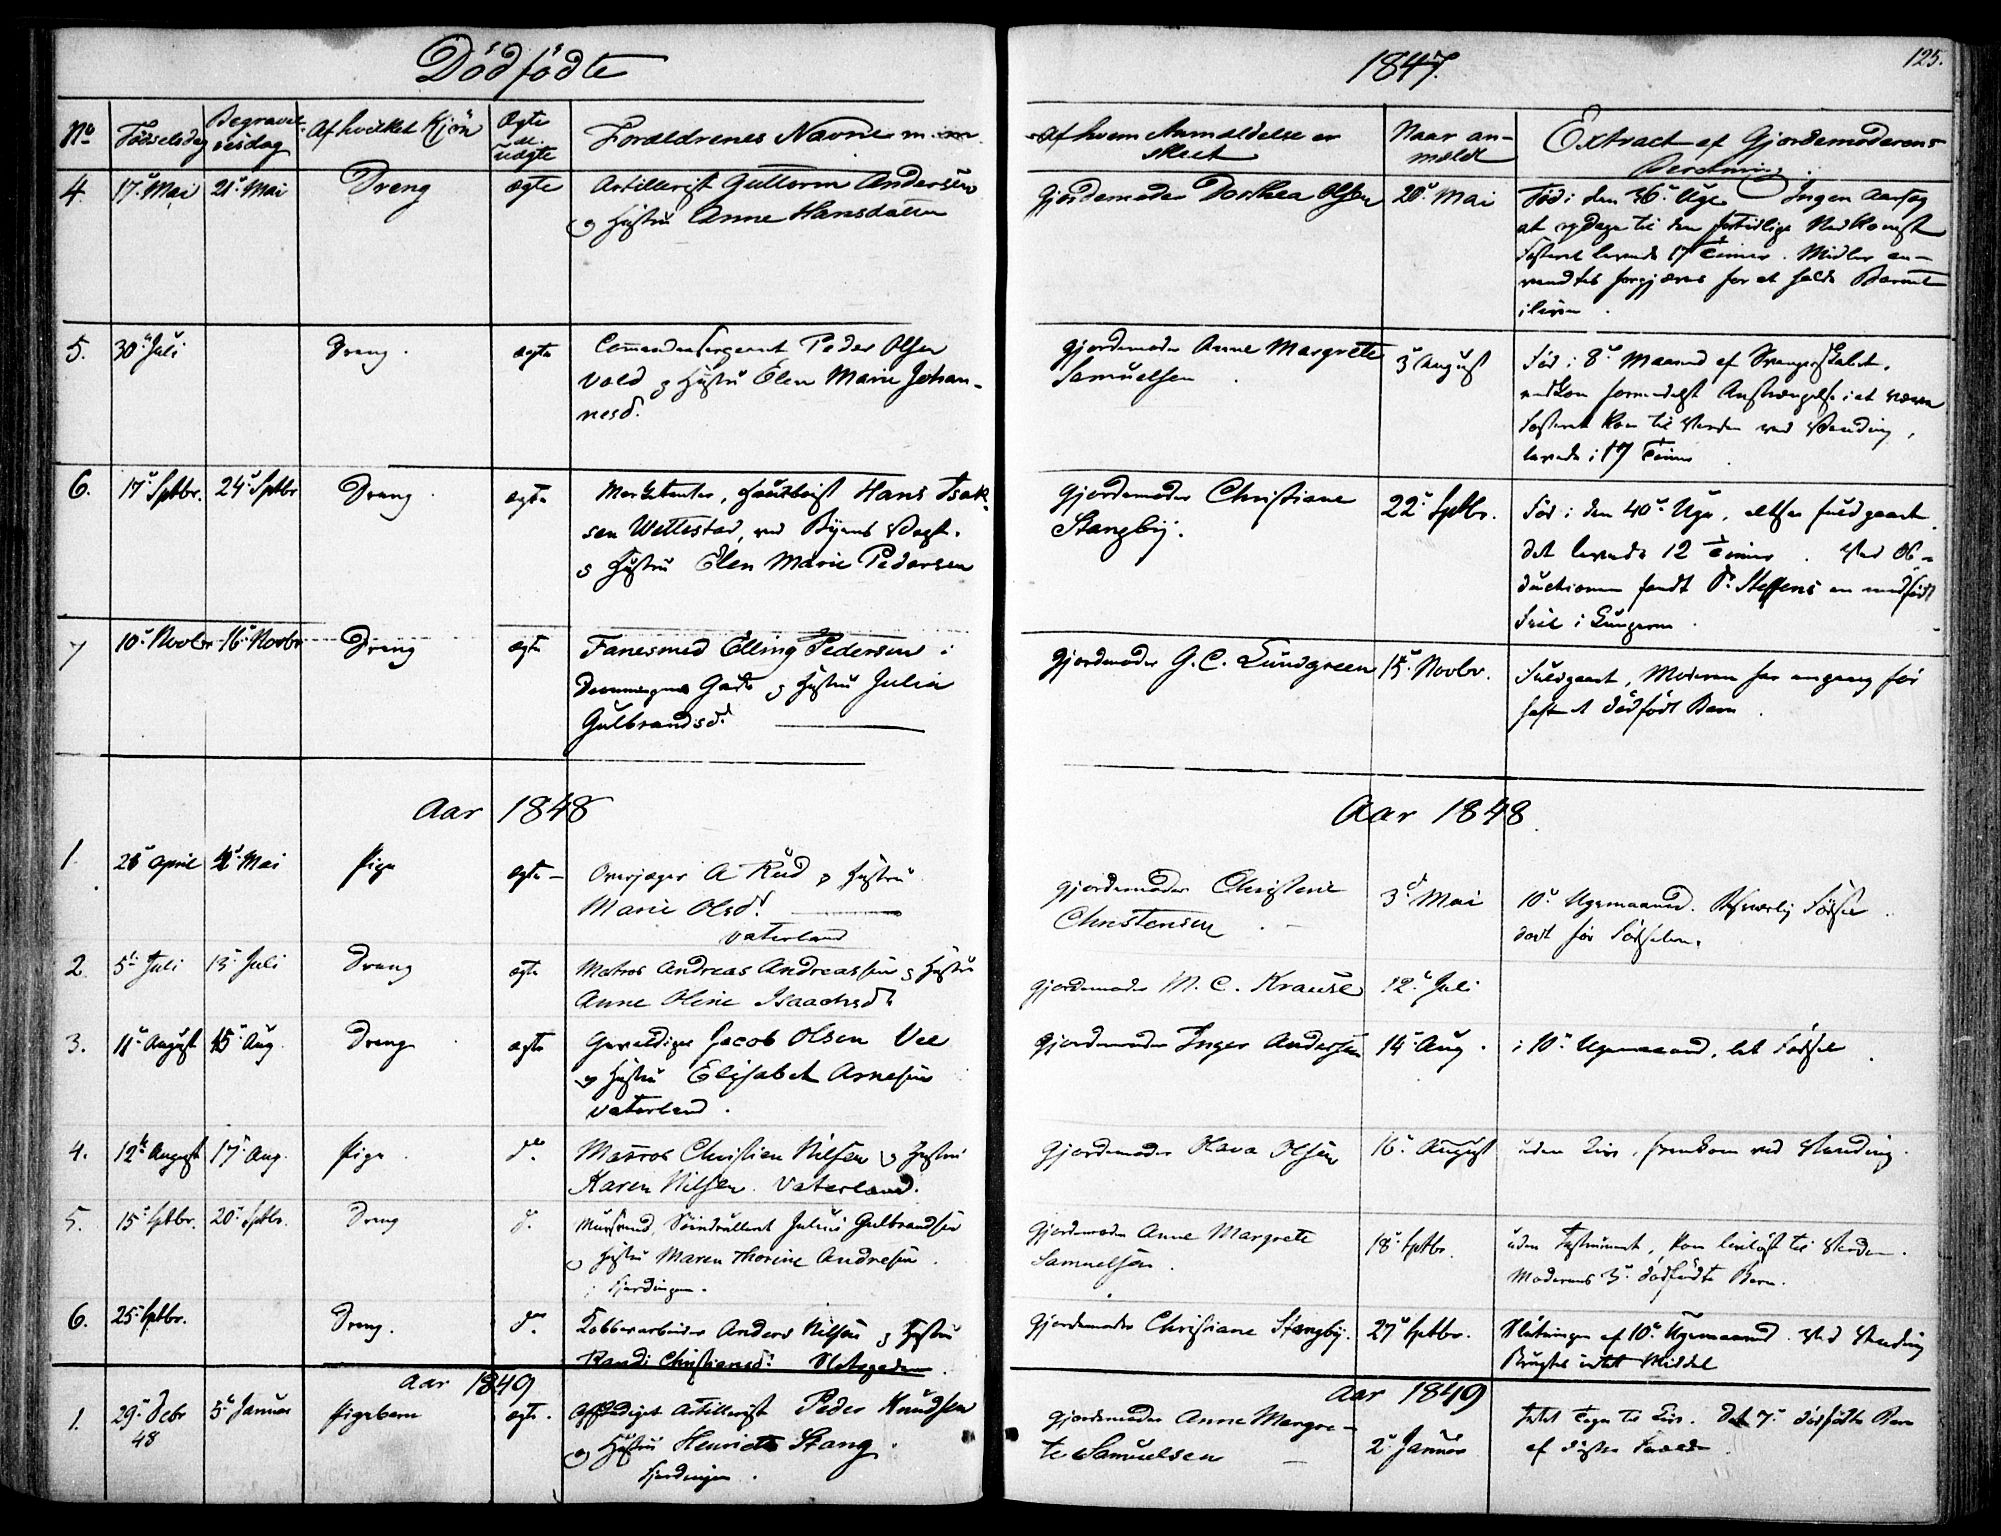 Dödfödte
1847.
125.
No
Fødselsdag
Begravelsesdag
Af hvilket Kjön
Ægte el. uægte
Forældrenes Navne m. m.
Af hvem Anmeldelse er skeet
Naar anmeldt
Extract af Gjordemoderens Beretning.
4. 17de Mai 21de Mai Dreng ægte Artillerist Guttorm Andersen
og Hustru Anne Hansdatter
Gjordemoder Dorthea Olsen 20de Mai Fød i den 36te Uge. Ingen Aarsag
at opdage til den fortidlige Nedkomst
Fosteret levede 17 Timer. Midler an-
vendtes forgjæves for at holde Barnet
ilive.
5. 30te Juli Dreng. ægte Commandeersergeant Peder Olsen
Vold og Hustru Elen Marie Johan-
nesd.
Gjordemoder Anne Margrete
Samuelsen
3de August Fød i 8de Maaned af Svangerskabet,
formedelst Anstrængelse i at
Fosteret kom til Verden ved Vending,
levede i 17 Timer
6. 17de Septbr. 24de Septbr Dreng ægte Marketenter, Hautboist Hans Isak-
sen Wettestad, ved Byens Vagt.
og Hustru Elen Marie Pedersen
Gjordemoder Christiane
Stangby.
22de Septbr. Fød i den 40de Uge, altsaa fuldgaaet.
det levede 12 Timer. Ved Ob-
ductionen fandt Dr. Steffens en medfødt
Feil i Lungerne.
7 10de Novbr 16de Novbr Dreng ægte Fanesmed Elling Pedersen i
Dronningens Gade og Hustru Julia
Gulbrandsd.
Gjordemoder G. C. Lundgreen 15de Novbr. Fuldgaaet, Moderen har engang før
havt et dødfødt Barn.
Aar 1848
Aar 1848.
1. 26de April 2de Mai Pige ægte Overjæger A Rud og Hustru
Marie Olsd.
Vaterland
Gjordemoder Christine
Christensen
3de Mai 10de Ugemaaned. Besværlig Fødsel
dødt før Fødselen.
2. 5te Juli 13de Juli Dreng ægte Matros Andreas Andreassen og Hustru
Anne Oline Isaachsd.
Gjordemoder M. C. Krause 12te Juli
3. 11te August 15de Aug. Dreng ægte Gevaldiger Jacob Olsen Vee
og Hustru Elisabet Arnesen
Vaterland.
Gjordemoder Inger Andersen 14de Aug. i 10de Ugemaaned, let Fødsel
4. 12te August 17de Aug. Pige do. Matros Christian Nilsen og Hustru
Karen Nilsen. Vaterland.
Gjordemoder Olava Olsen 16de August uden Liv, fremkom ved Vending.
5. 15de Septbr. 20de Septbr. Dreng d. Muursvend, Julius Gulbrandsen
og Hustru Maren Thorine Andresen
i Fjerdingen.
Gjordemoder Anne Margrete
Samuelsen.
18de Septbr. uden Instrument, kom livløst til Verden.
Moderens 3de dødfødte Barn.
6. 25de Septbr. Dreng. do. Kobberarbeider Anders Nilsen og Hustru
Randi Christiansd. Slotsgaden
Gjordemoder Christiane Stangby. 27de Septbr. Slutningen af 10de Ugemaaned. Ved Vending
Brugtes intet Middel
Aar 1849
Aar 1849
1. 29de Debr 48 5te Januar Pigebarn ægte. Afskediget Artillerist Peder Knudsen
og Hustru Henriette Stang.
Fjerdingen.
Gjordemoder Anne Margre-
te Samuelsen
2de Januar Intet Tegn til Liv. Det 7de dødfødte Barn
af disse Forældre.